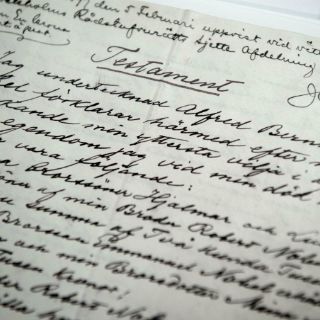 97 den 5 Februari uppvist vid vitt
Stockholms Rådstufvurätts sjette Afdelning
Testament
Jag undertecknad Alfred Bern
el förklarar härmed efter m
ande min yttersta vilja i
egendom jag vid min död
vara följande:
Brorsöner Hjalmar och Lu
öner af min Broder Robert Nobel
en summa af Två Hundra Tus
Brorson Emmanuel Nobel
och min Brorsdotter Mina
Tusen Kronor;
er Robert Nob